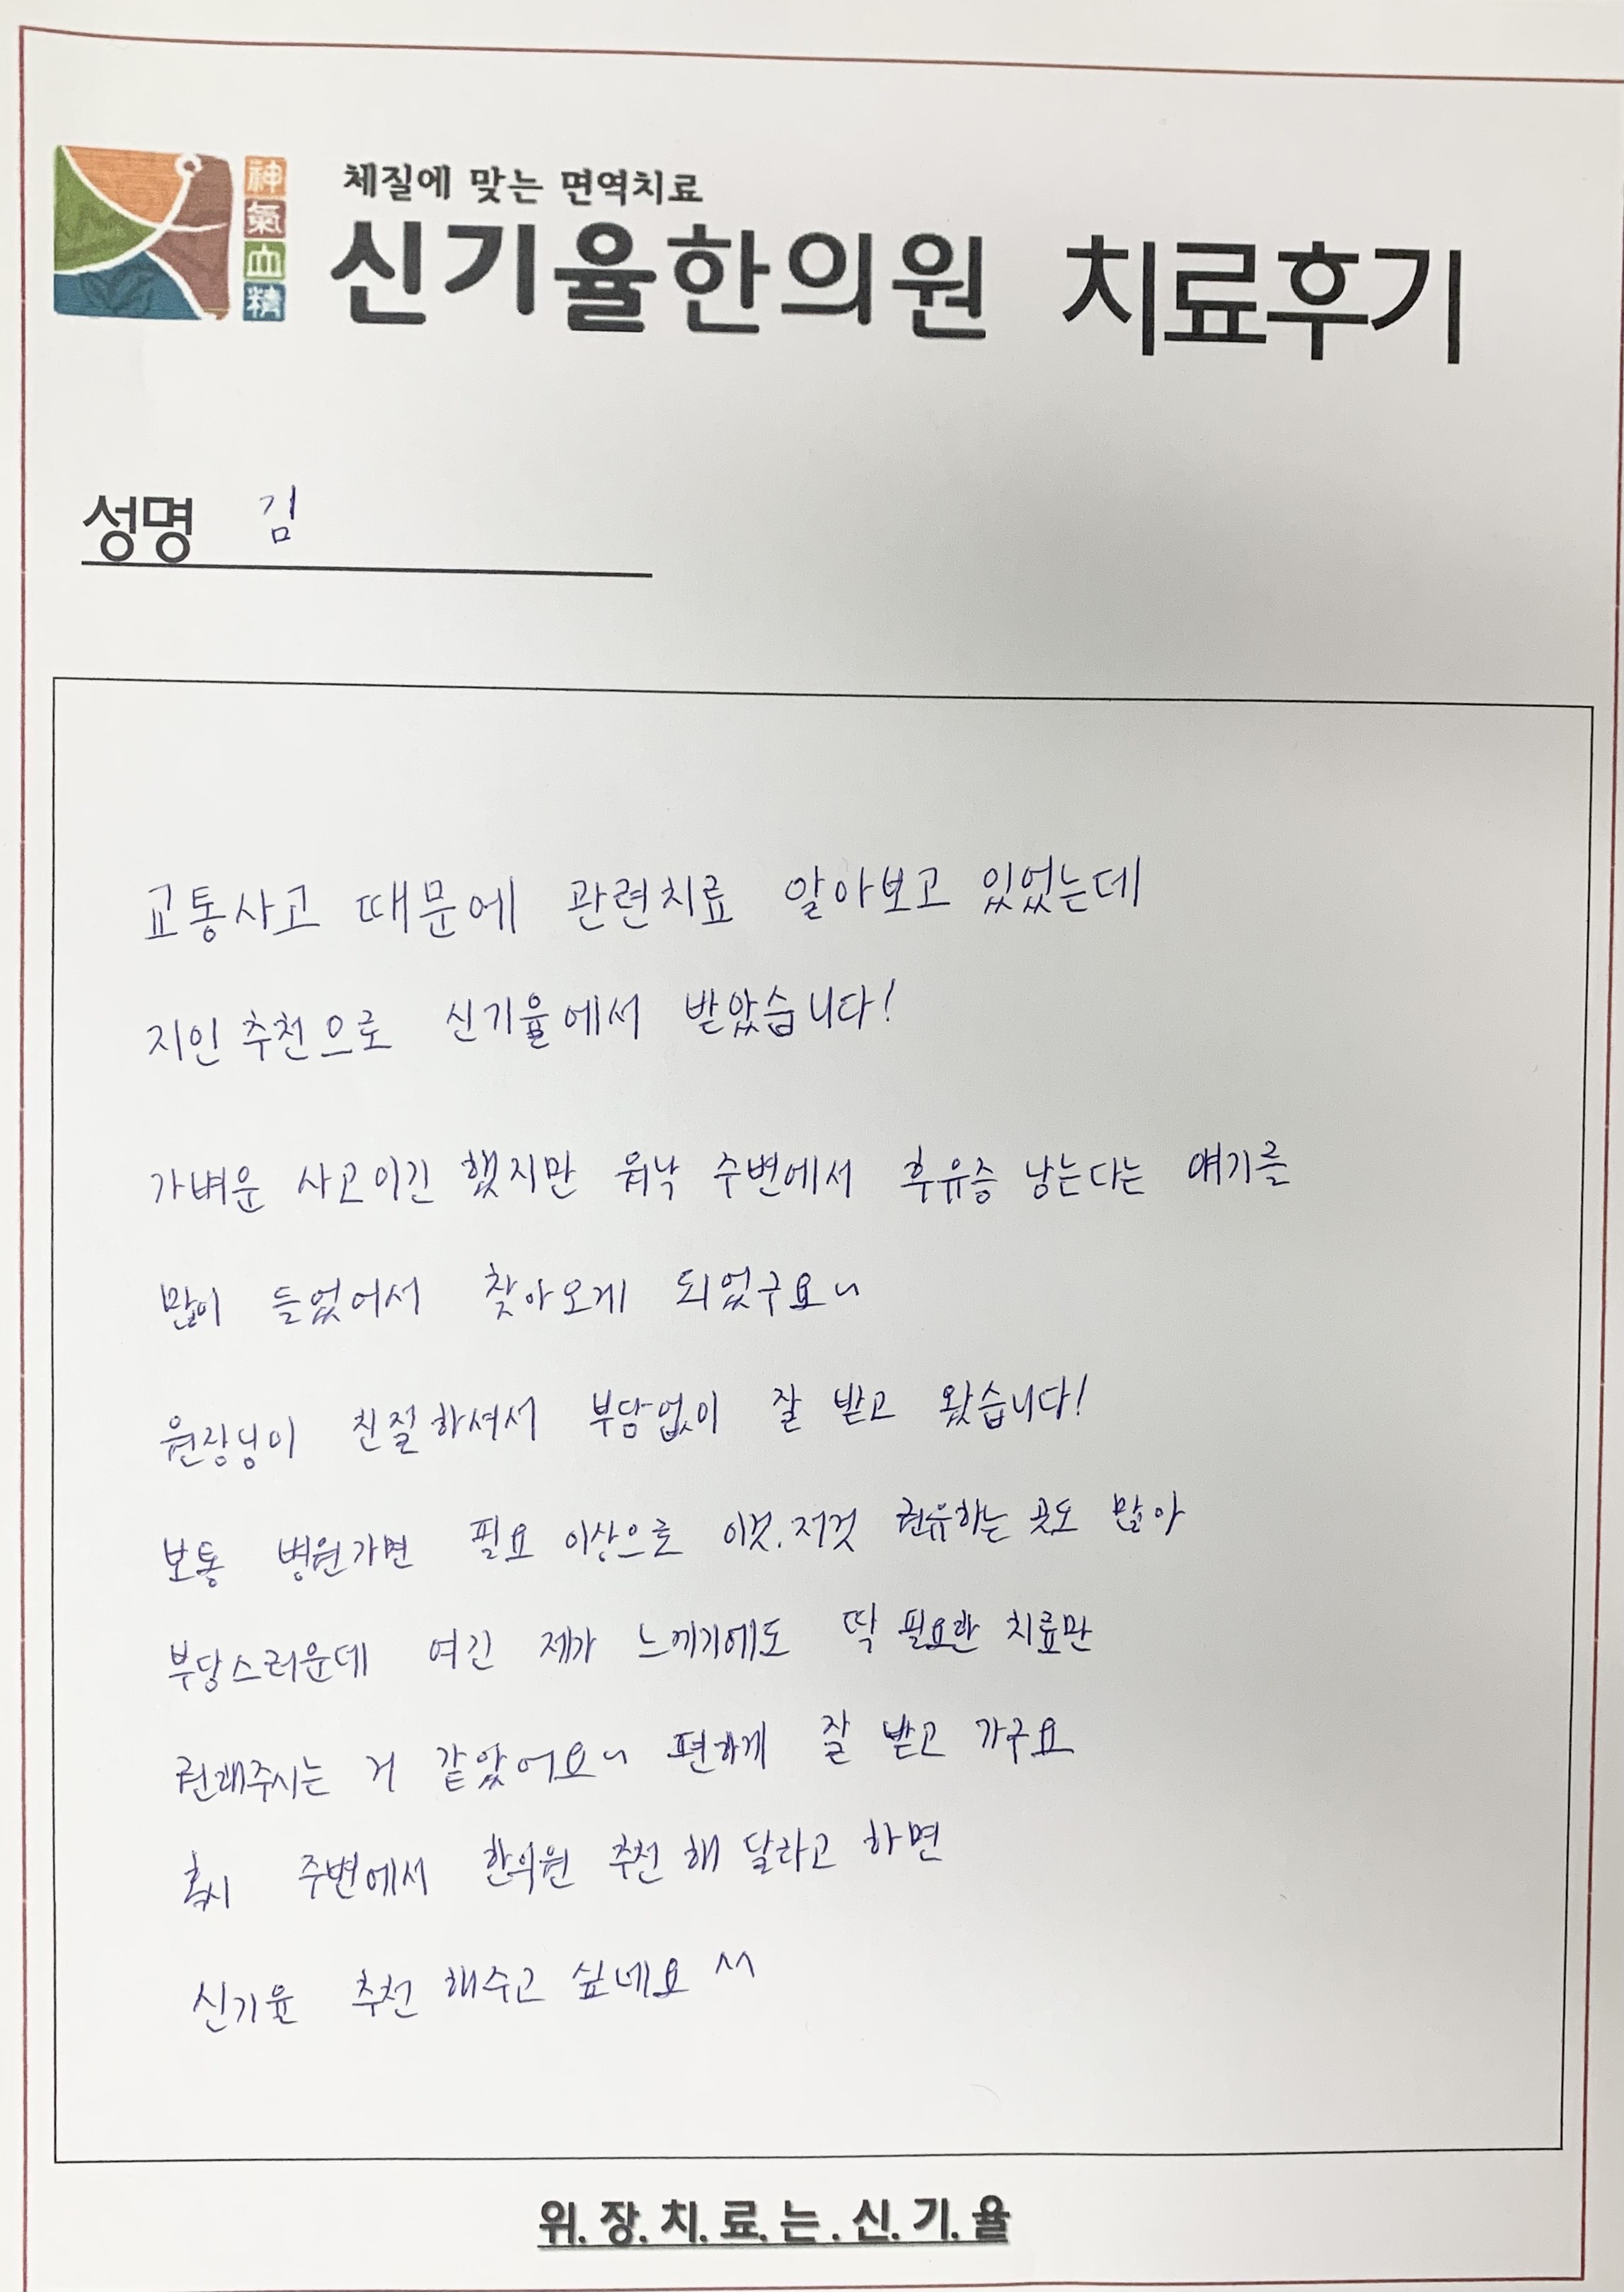 神氣血精
체질에 맞는 면역치료
신기율한의원 치료후기
성명 김
교통사고 때문에 관련치료 알아보고 있었는데
지인 추천으로 신기율에서 받았습니다!
가벼운 사고이긴 했지만 워낙 주변에서 후유증 남는다는 얘기를
많이 들었어서 찾아오게 되었구요~
원장님이 친절하셔서 부담없이 잘 받고 왔습니다!
보통 병원가면 필요 이상으로 이것.저것 권유하는 곳도 많아
부담스러운데 여긴 제가 느끼기에도 딱 필요한 치료만
권해주시는 거 같았어요~ 편하게 잘 받고 가구요
혹시 주변에서 한의원 추천 해 달라고 하면
신기율 추천 해주고 싶네요 ^^
위.장.치.료.는.신.기.율